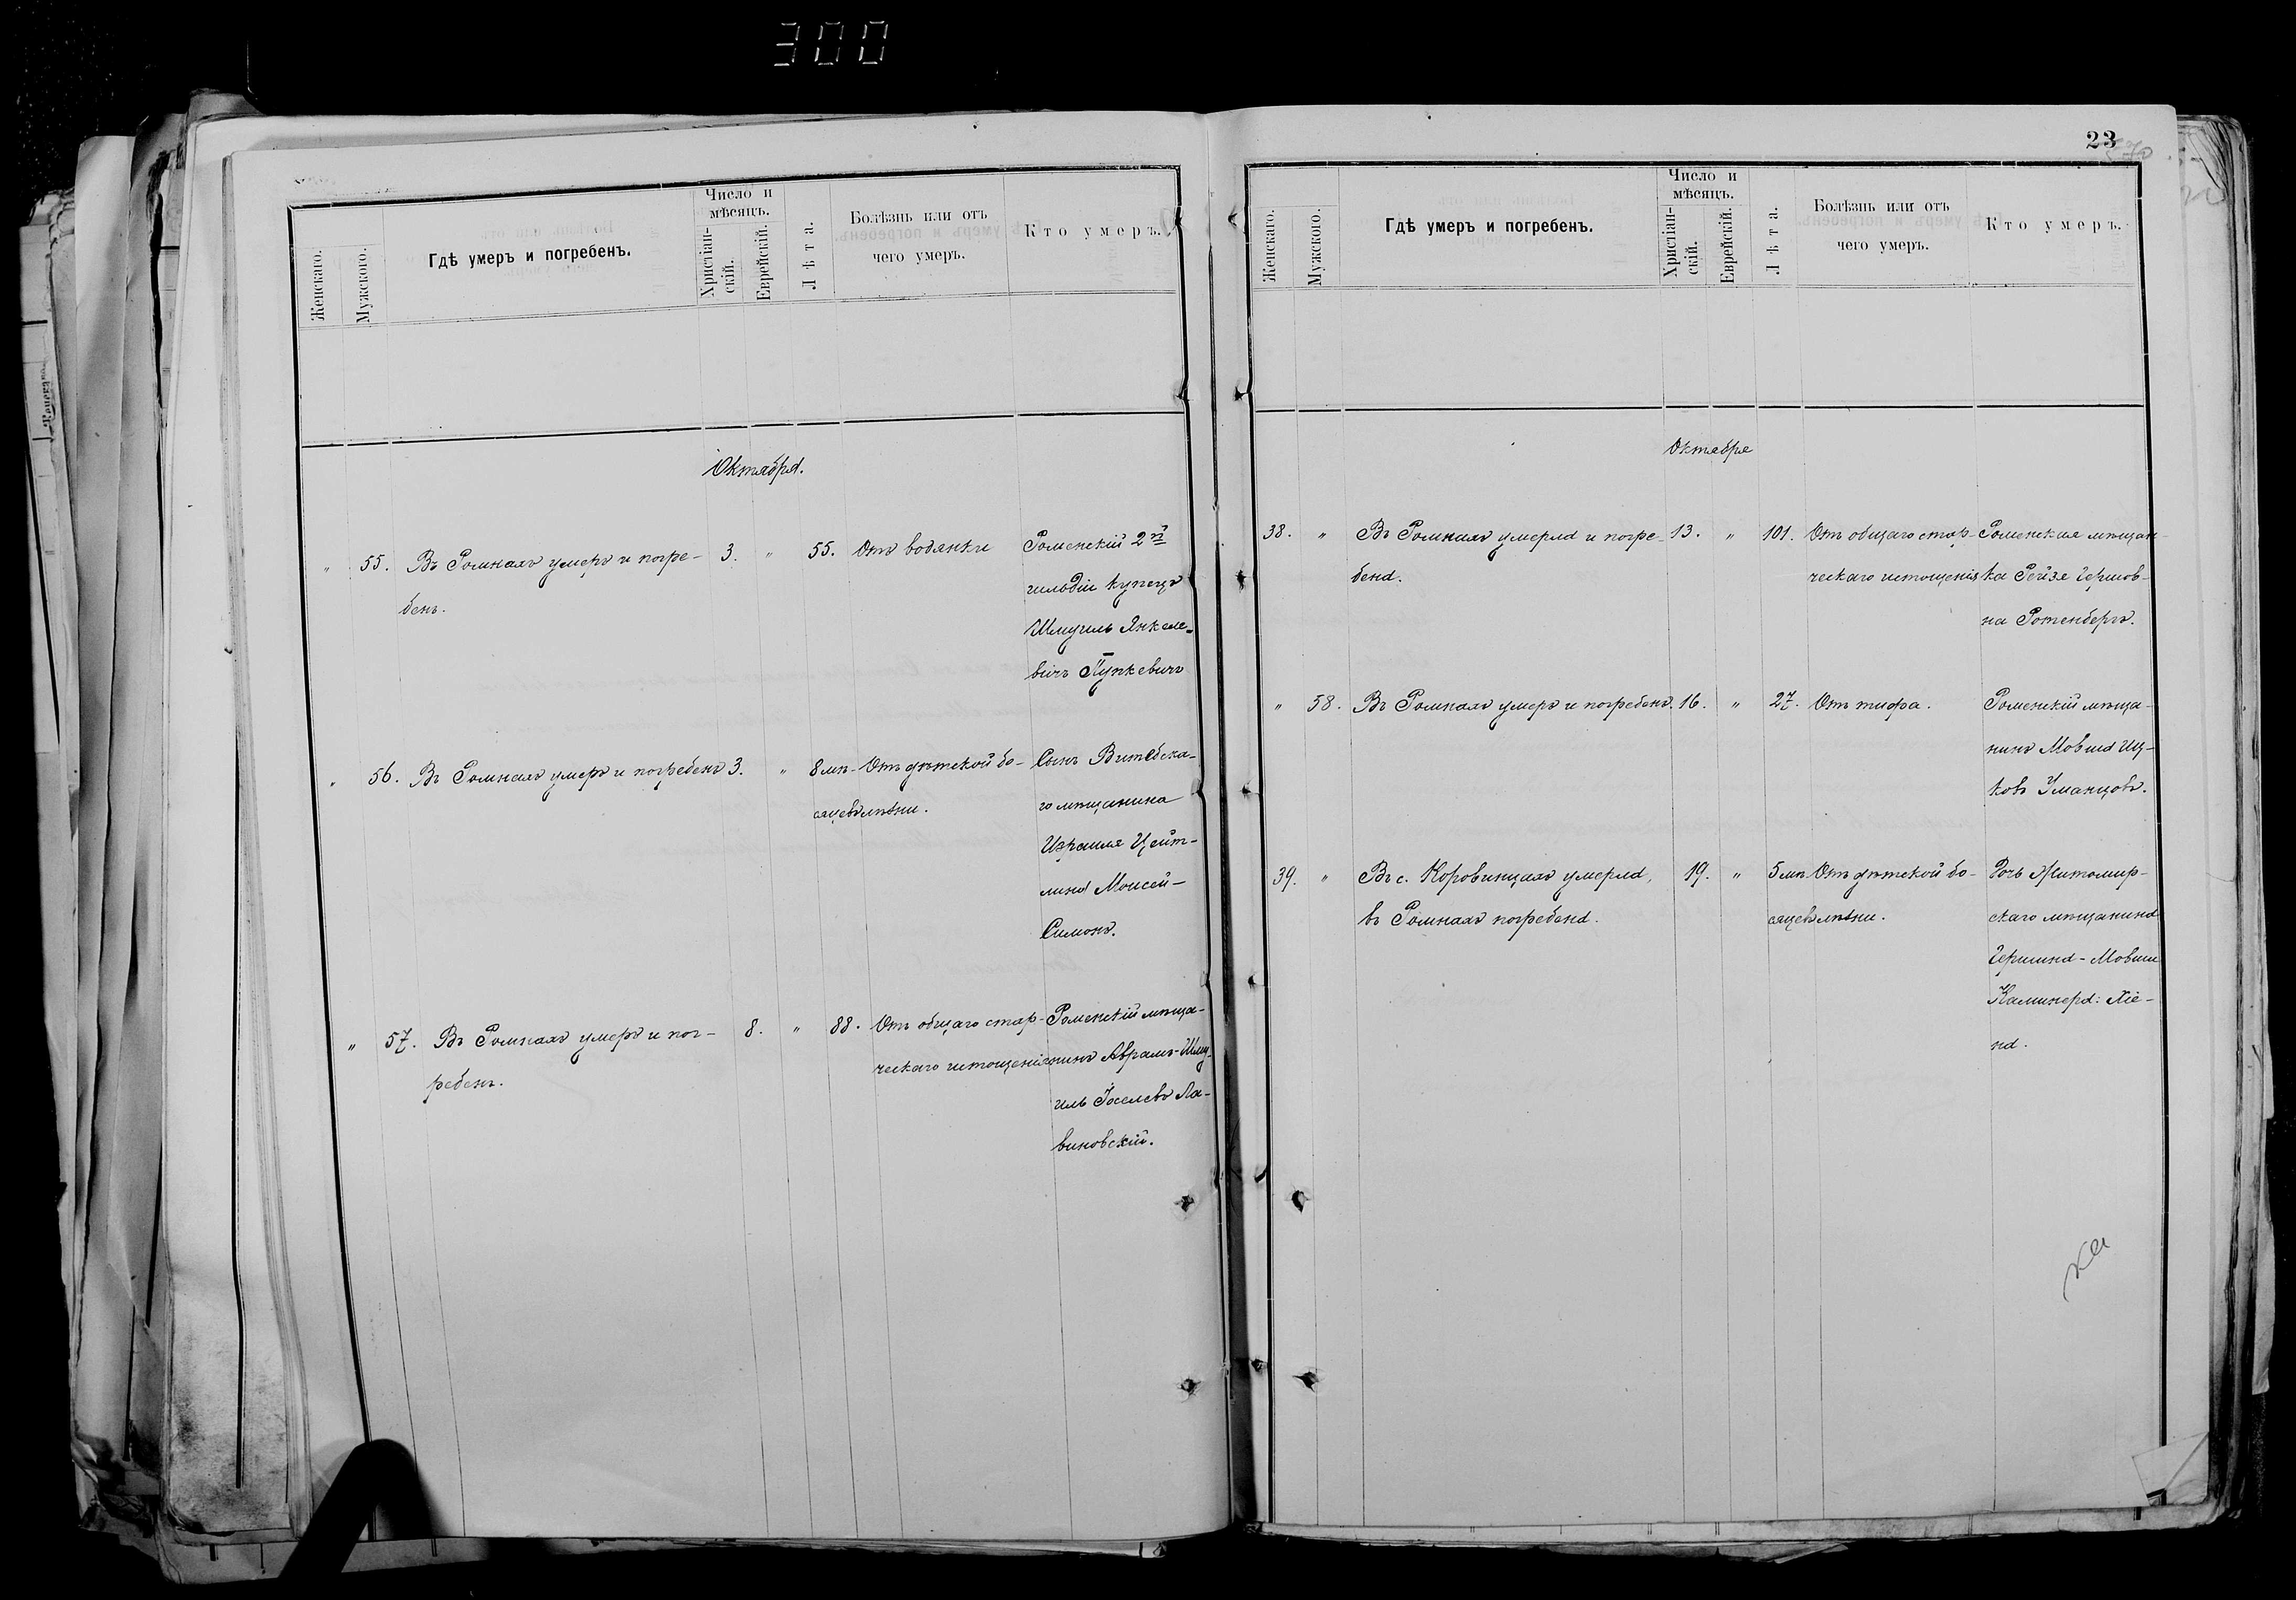 300
Женскаго.
Мужскаго.
Гдѣ умеръ и погребенъ.
Число и
мѣсяцъ.
Христіан-
скій.
Еврейскій.
Лѣта.
Болѣзнь или отъ
чего умеръ.
Кто умеръ.
Октября.
" 55. Въ Ромнахъ умеръ и погре- 3. " 55. Отъ водянки Роменскій 2й
бенъ. гильдіи купецъ
Шмуиль Янкеле-
вичъ Пупкевичъ
" 56. Въ Ромнахъ умеръ и погребенъ 3. " 8 мѣ- Отъ дѣтской бо- Сынъ Витебска-
сяцевъ лѣзни. го мѣщанина
Израиля Цейт-
лина Моисей-
Симонъ.
" 57. Въ Ромнахъ умеръ и пог- 8. " 88. Отъ общаго стар- Роменскій мѣща-
ребенъ. ческаго истощенія нинъ Абрамъ-Шму-
иль Іоселевъ Ла-
виновскій.
23
Женскаго.
Мужскаго.
Гдѣ умеръ и погребенъ.
Число и
мѣсяцъ.
Христіан-
скій.
Еврейскій.
Лѣта.
Болѣзнь или отъ
чего умеръ.
Кто умеръ.
Октября
38. " Въ Ромнахъ умерла и погре- 13. " 101. Отъ общаго стар- Роменская мѣщан-
бена. ческаго истощенія ка Рейзе Гершов-
на Ротенбергъ.
" 58. Въ Ромнахъ умеръ и погребенъ. 16. " 27. Отъ тифа. Роменскій мѣща-
нинъ Мовша Иц-
ковъ Уманцовъ.
39. " Въ с. Коровинцахъ умерла, 19. " 5 мѣ- Отъ дѣтской бо- Дочь Житомир-
въ Ромнахъ погребена. сяцевъ лѣзни. скаго мѣщанина
Гершона-Мовши
Каминера: Хіе-
на.